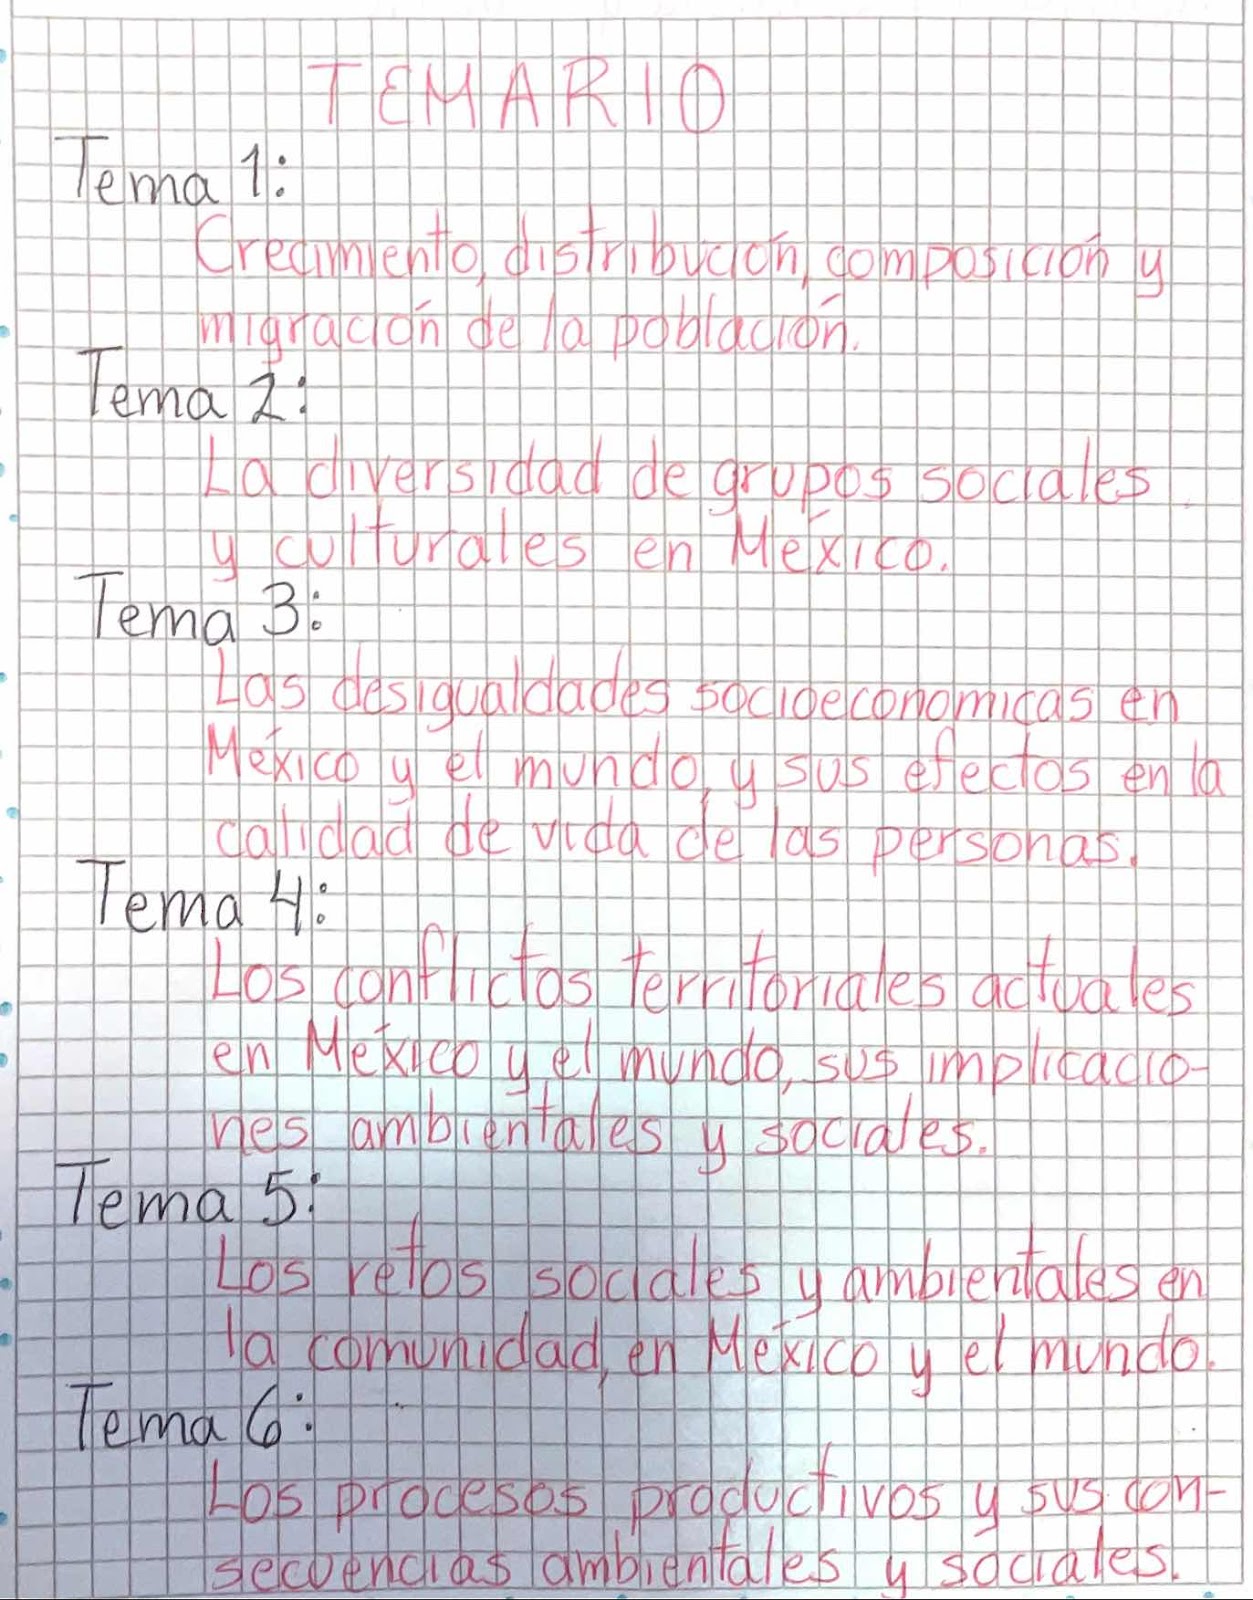 TEMARIO
Tema 1:
Crecimiento, distribución, composición y
migración de la población.
Tema 2:
La diversidad de grupos sociales
y culturales en México.
Tema 3:
Las desigualdades socioeconomicas en
México y el mundo, y sus efectos en la
calidad de vida de las personas.
Tema 4:
Los conflictos territoriales actuales
en México y el mundo, sus implicacio-
nes ambientales y sociales.
Tema 5:
Los retos sociales y ambientales en
la comunidad, en México y el mundo.
Tema 6:
Los procesos productivos y sus con-
secuencias ambientales y sociales.